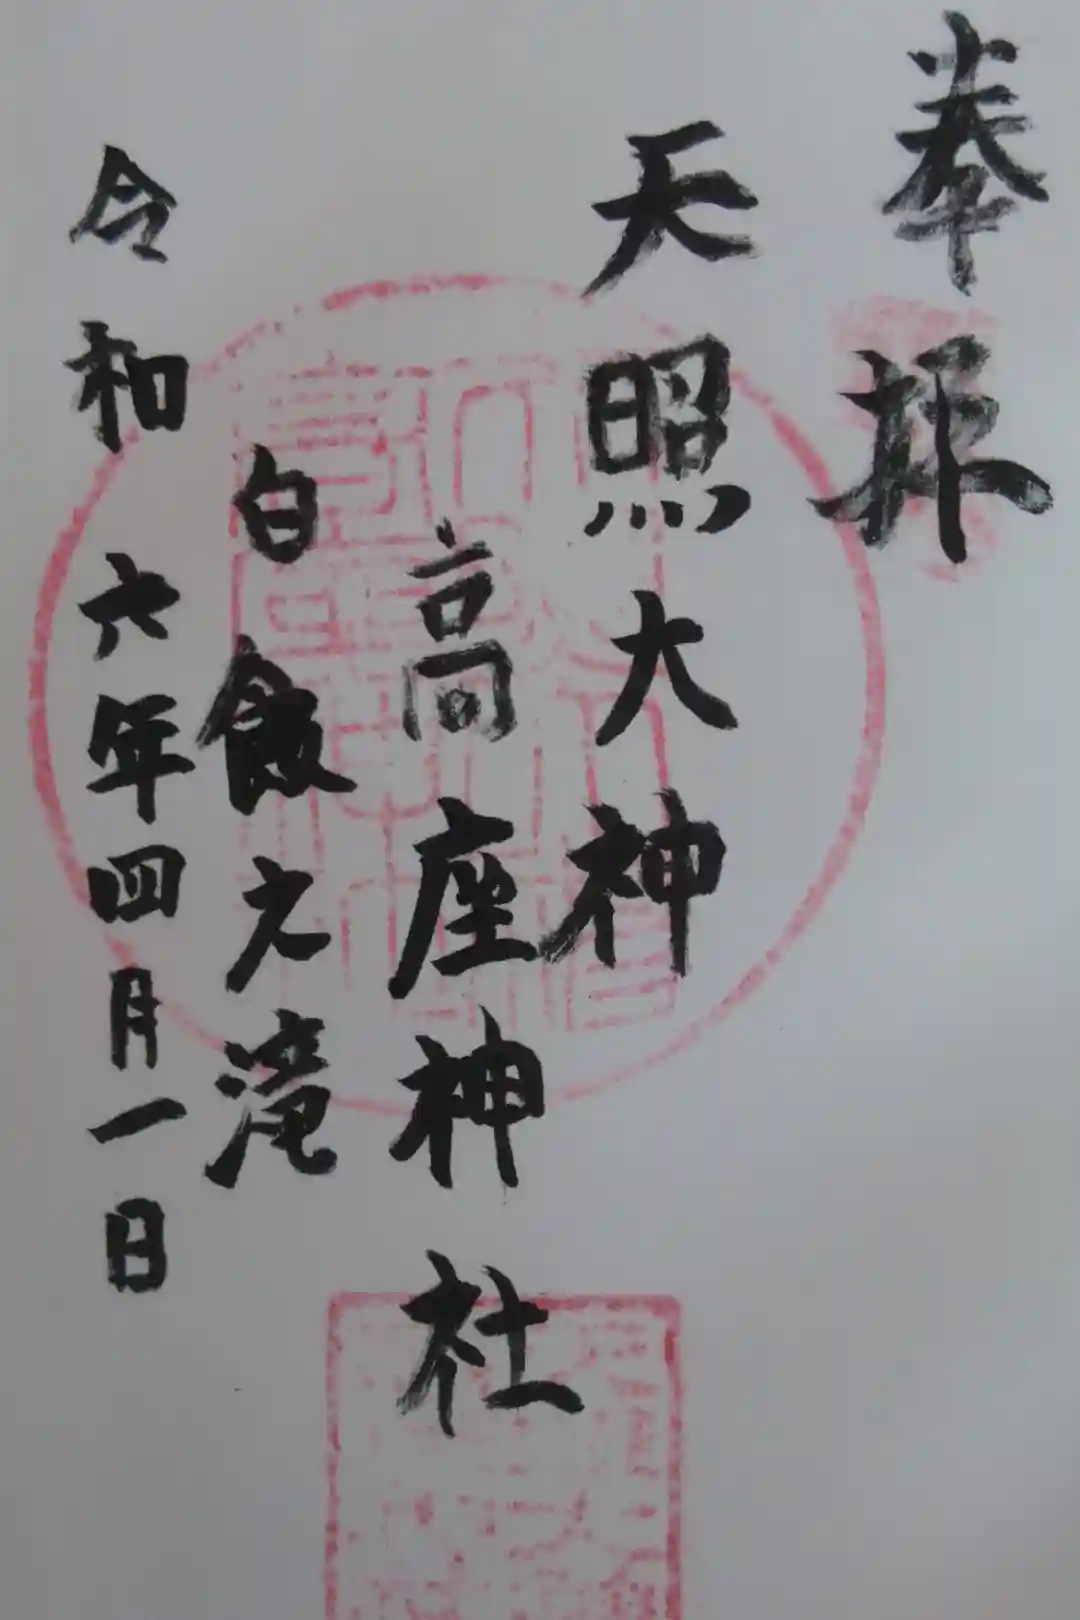 奉拝
天照大神
高座神社
白飯之滝
令和六年四月一日